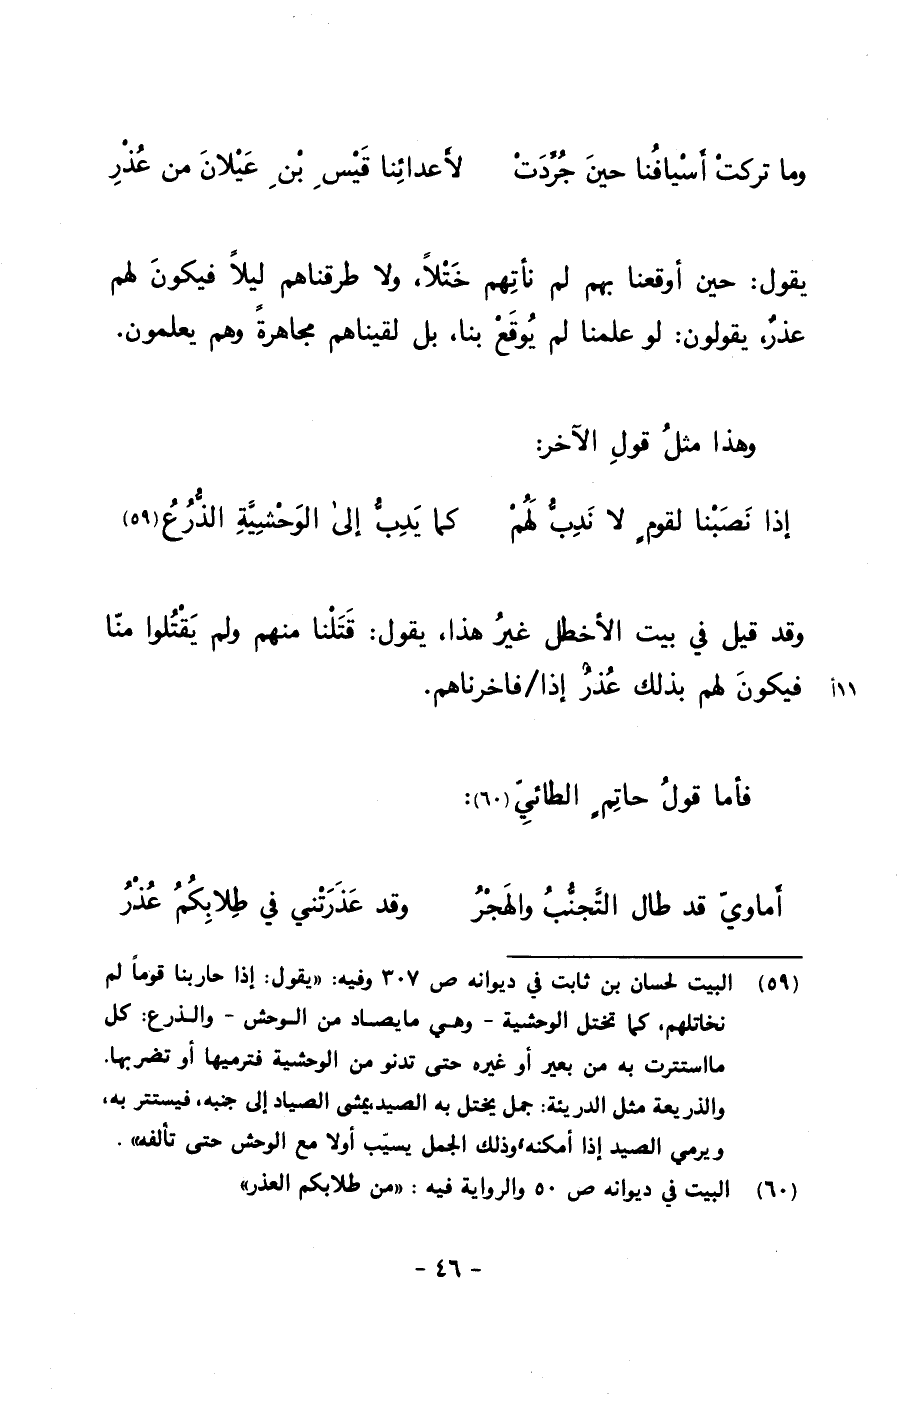 وما تركتْ أَسْيافُنا حينَ جُرِّدَتْ لأَعدائِنا قَيْسِ بْنِ عَيْلانَ من عُذْرِ
يقول: حين أوقعنا بهم لم نأتِهم خَتْلاً، ولا طرقناهم ليلاً فيكونَ لهم
عذرٌ، يقولون: لو علمنا لم يُوقَعْ بنا، بل لقيناهم مجاهرةً وهم يعلمون.
وهذا مثلُ قولِ الآخر:
إذا نَصَبْنا لقومٍ لا نَدِبُّ لَهُمْ كما يَدِبُّ إلىٰ الوَحْشيَّةِ الذُّرُعُ (٥٩)
وقد قيل في بيت الأخطل غيرُ هذا، يقول: قَتَلْنا منهم ولم يَقْتُلوا منّا
١١أ فيكونَ لهم بذلك عُذرٌ إذا/فاخرناهم.
فأما قولُ حاتِمٍ الطائيِّ (٦٠):
أَماويّ قد طال التَّجنُّبُ والهَجْرُ وقد عَذَرَتْني في طِلابِكُمُ عُذْرُ
(٥٩) البيت لحسان بن ثابت في ديوانه ص ٣٠٧ وفيه: «يقول: إذا حاربنا قوماً لم
نخاتلهم، كما تختل الوحشية - وهي مايصاد من الوحش - والذرع: كل
مااستترت به من بعير أو غيره حتى تدنو من الوحشية فترميها أو تضربها.
والذريعة مثل الدريئة: جمل يختل به الصيد،يمشى الصياد إلى جنبه، فيستتر به،
ويرمي الصيد إذا أمكنه،وذلك الجمل يسيّب أولا مع الوحش حتى تألفه» .
(٦٠) البيت في ديوانه ص ٥٠ والرواية فيه : «من طلابكم العذر»
- ٤٦ -